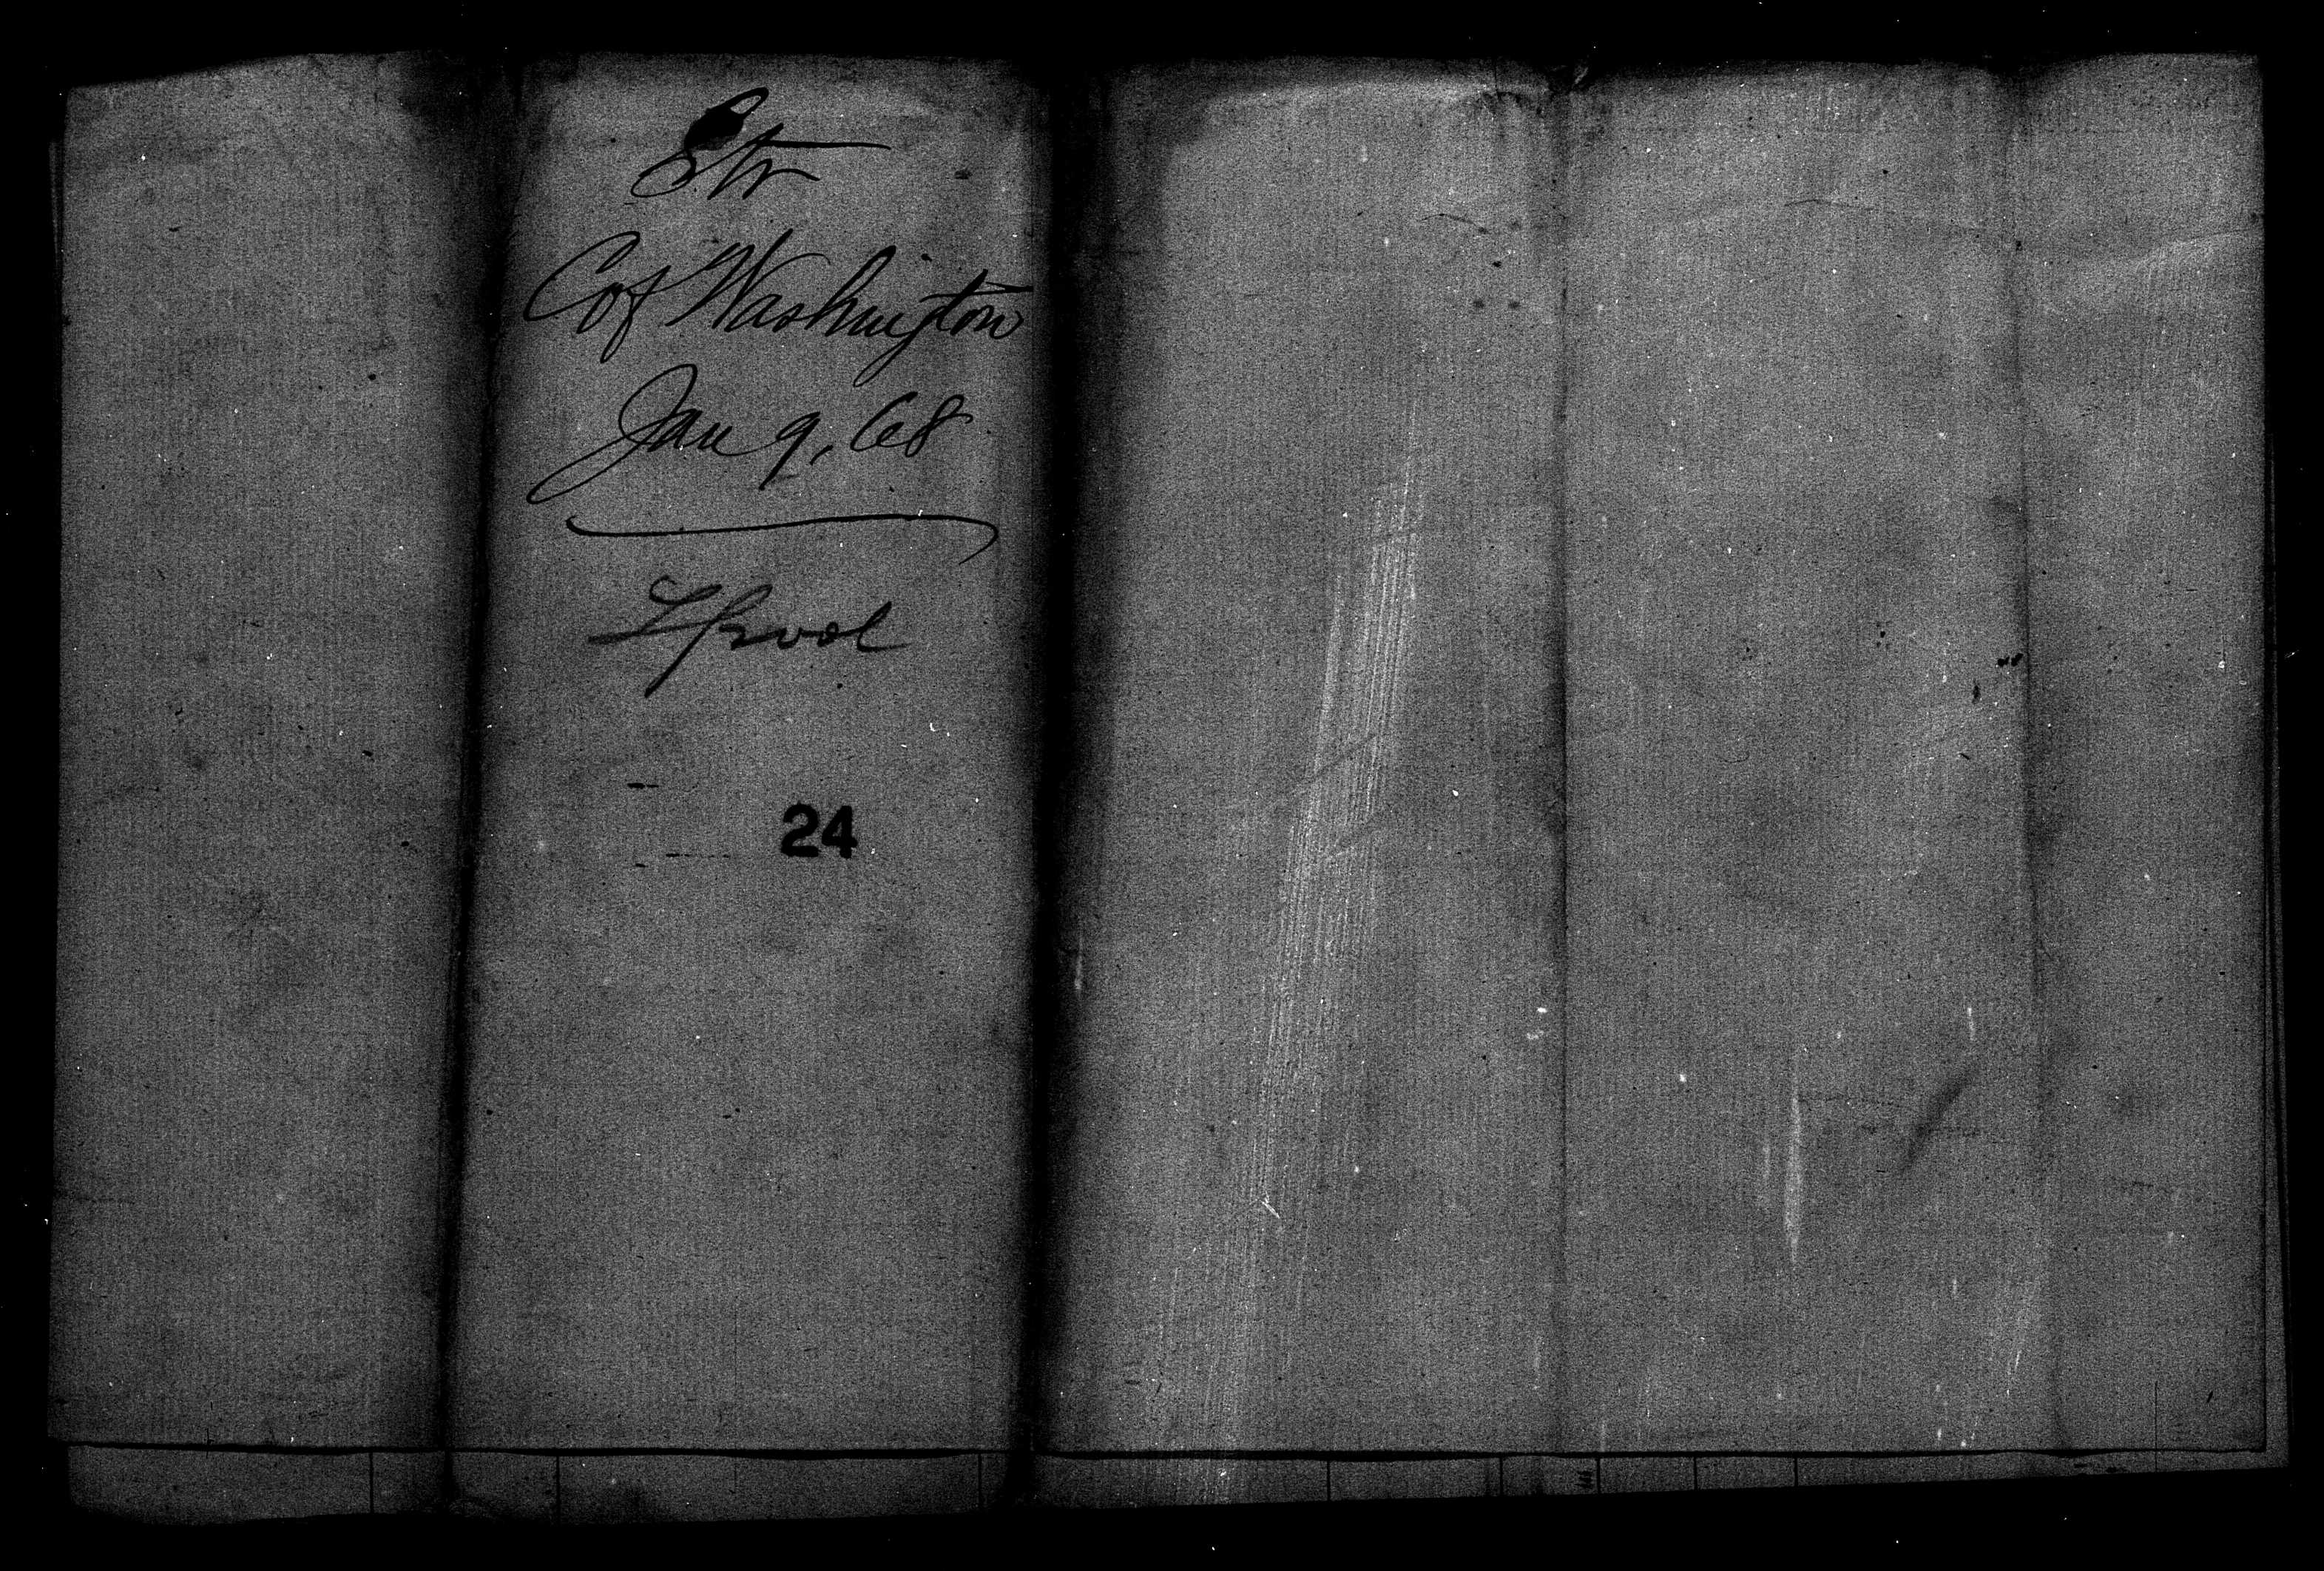 Str
C of Washington
Jan 9, 68
Lpool
24